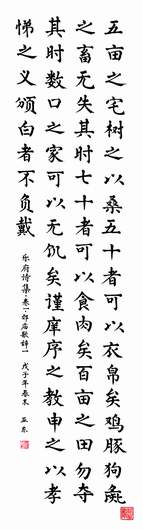 五亩之宅树之以桑五十者可以衣帛矣鸡豚狗彘
之畜无失其时七十者可以食肉矣百亩之田勿夺
其时数口之家可以无饥矣谨庠序之教申之以孝
悌之义颁白者不负戴
乐府诗集·卷一·郊庙歌辞一 戊子年春末